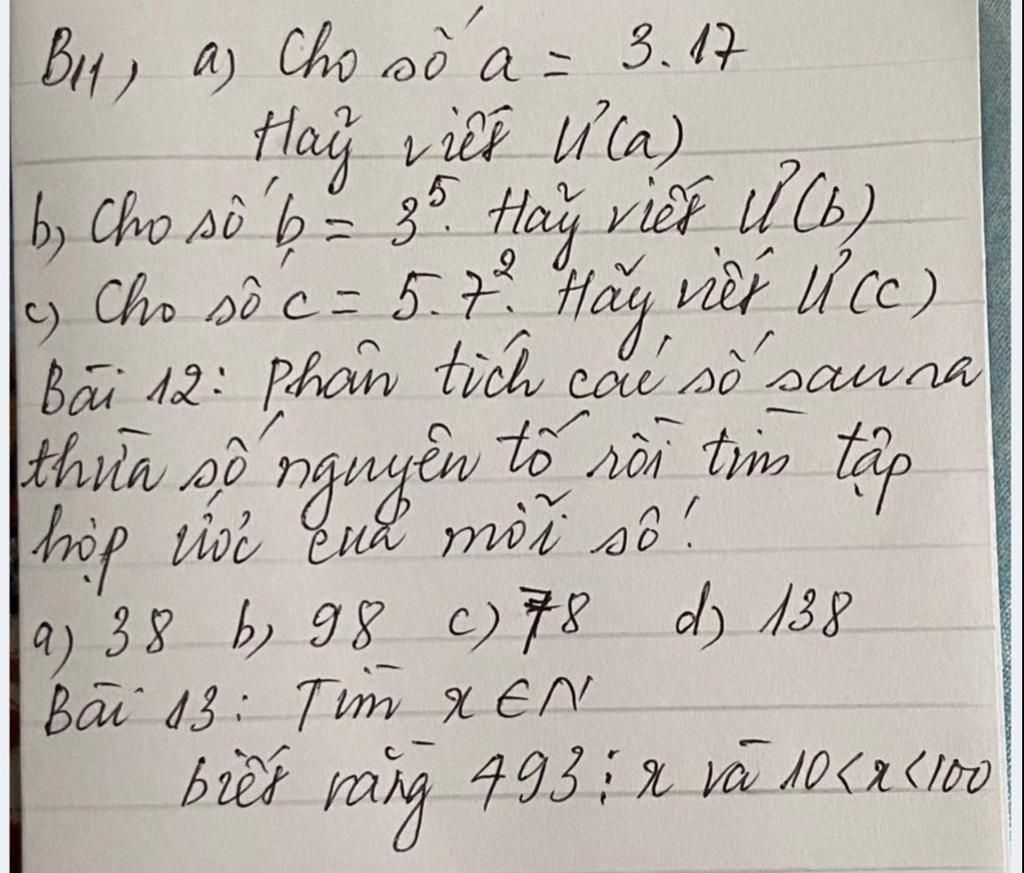 B11, a) Cho số a = 3.17
Hãy viết Ư(a)
b, Cho số b = 3⁵. Hãy viết Ư(b)
c) Cho số c = 5.7². Hãy viết Ư(c)
Bài 12: Phân tích các số sau ra
thừa số nguyên tố rồi tìm tập
hợp ước của mỗi số!
a) 38 b, 98 c) 78 d) 138
Bài 13: Tìm x ∈ N
biết rằng 493 ⋮ x và 10 < x < 100